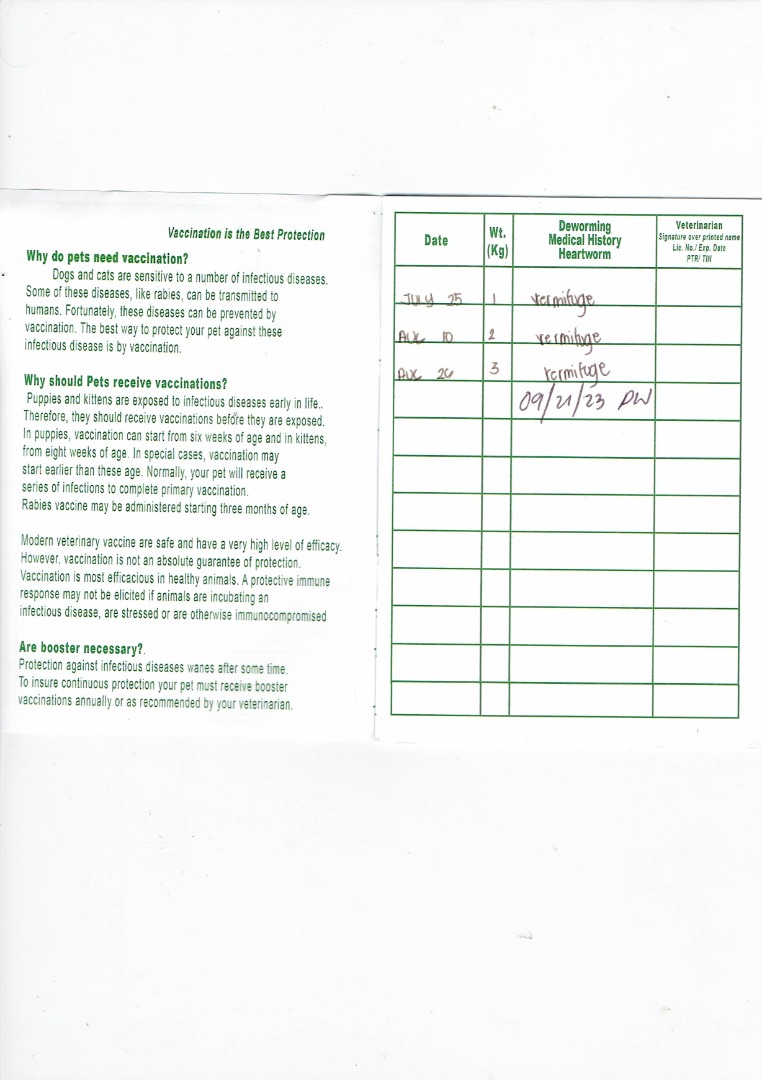 Vaccination is the Best Protection
Why do pets need vaccination?
Dogs and cats are sensitive to a number of infectious diseases.
Some of these diseases, like rabies, can be transmitted to
humans. Fortunately, these diseases can be prevented by
vaccination. The best way to protect your pet against these
infectious disease is by vaccination.
Why should Pets receive vaccinations?
Puppies and kittens are exposed to infectious diseases early in life..
Therefore, they should receive vaccinations before they are exposed.
In puppies, vaccination can start from six weeks of age and in kittens,
from eight weeks of age. In special cases, vaccination may
start earlier than these age. Normally, your pet will receive a
series of infections to complete primary vaccination.
Rabies vaccine may be administered starting three months of age.
Modern veterinary vaccine are safe and have a very high level of efficacy.
However, vaccination is not an absolute guarantee of protection.
Vaccination is most efficacious in healthy animals. A protective immune
response may not be elicited if animals are incubating an
infectious disease, are stressed or are otherwise immunocompromised
Are booster necessary?.
Protection against infectious diseases wanes after some time.
To insure continuous protection your pet must receive booster
vaccinations annually or as recommended by your veterinarian.
Date
Wt.
(Kg)
Deworming
Medical History
Heartworm
Veterinarian
Signature over printed name
Lic. No./ Exp. Date
PTR/ TIN
JULY 25 1 vermifuge
AUG 10 2 vermifuge
AUG 26 3 vermifuge
09/21/23 DW